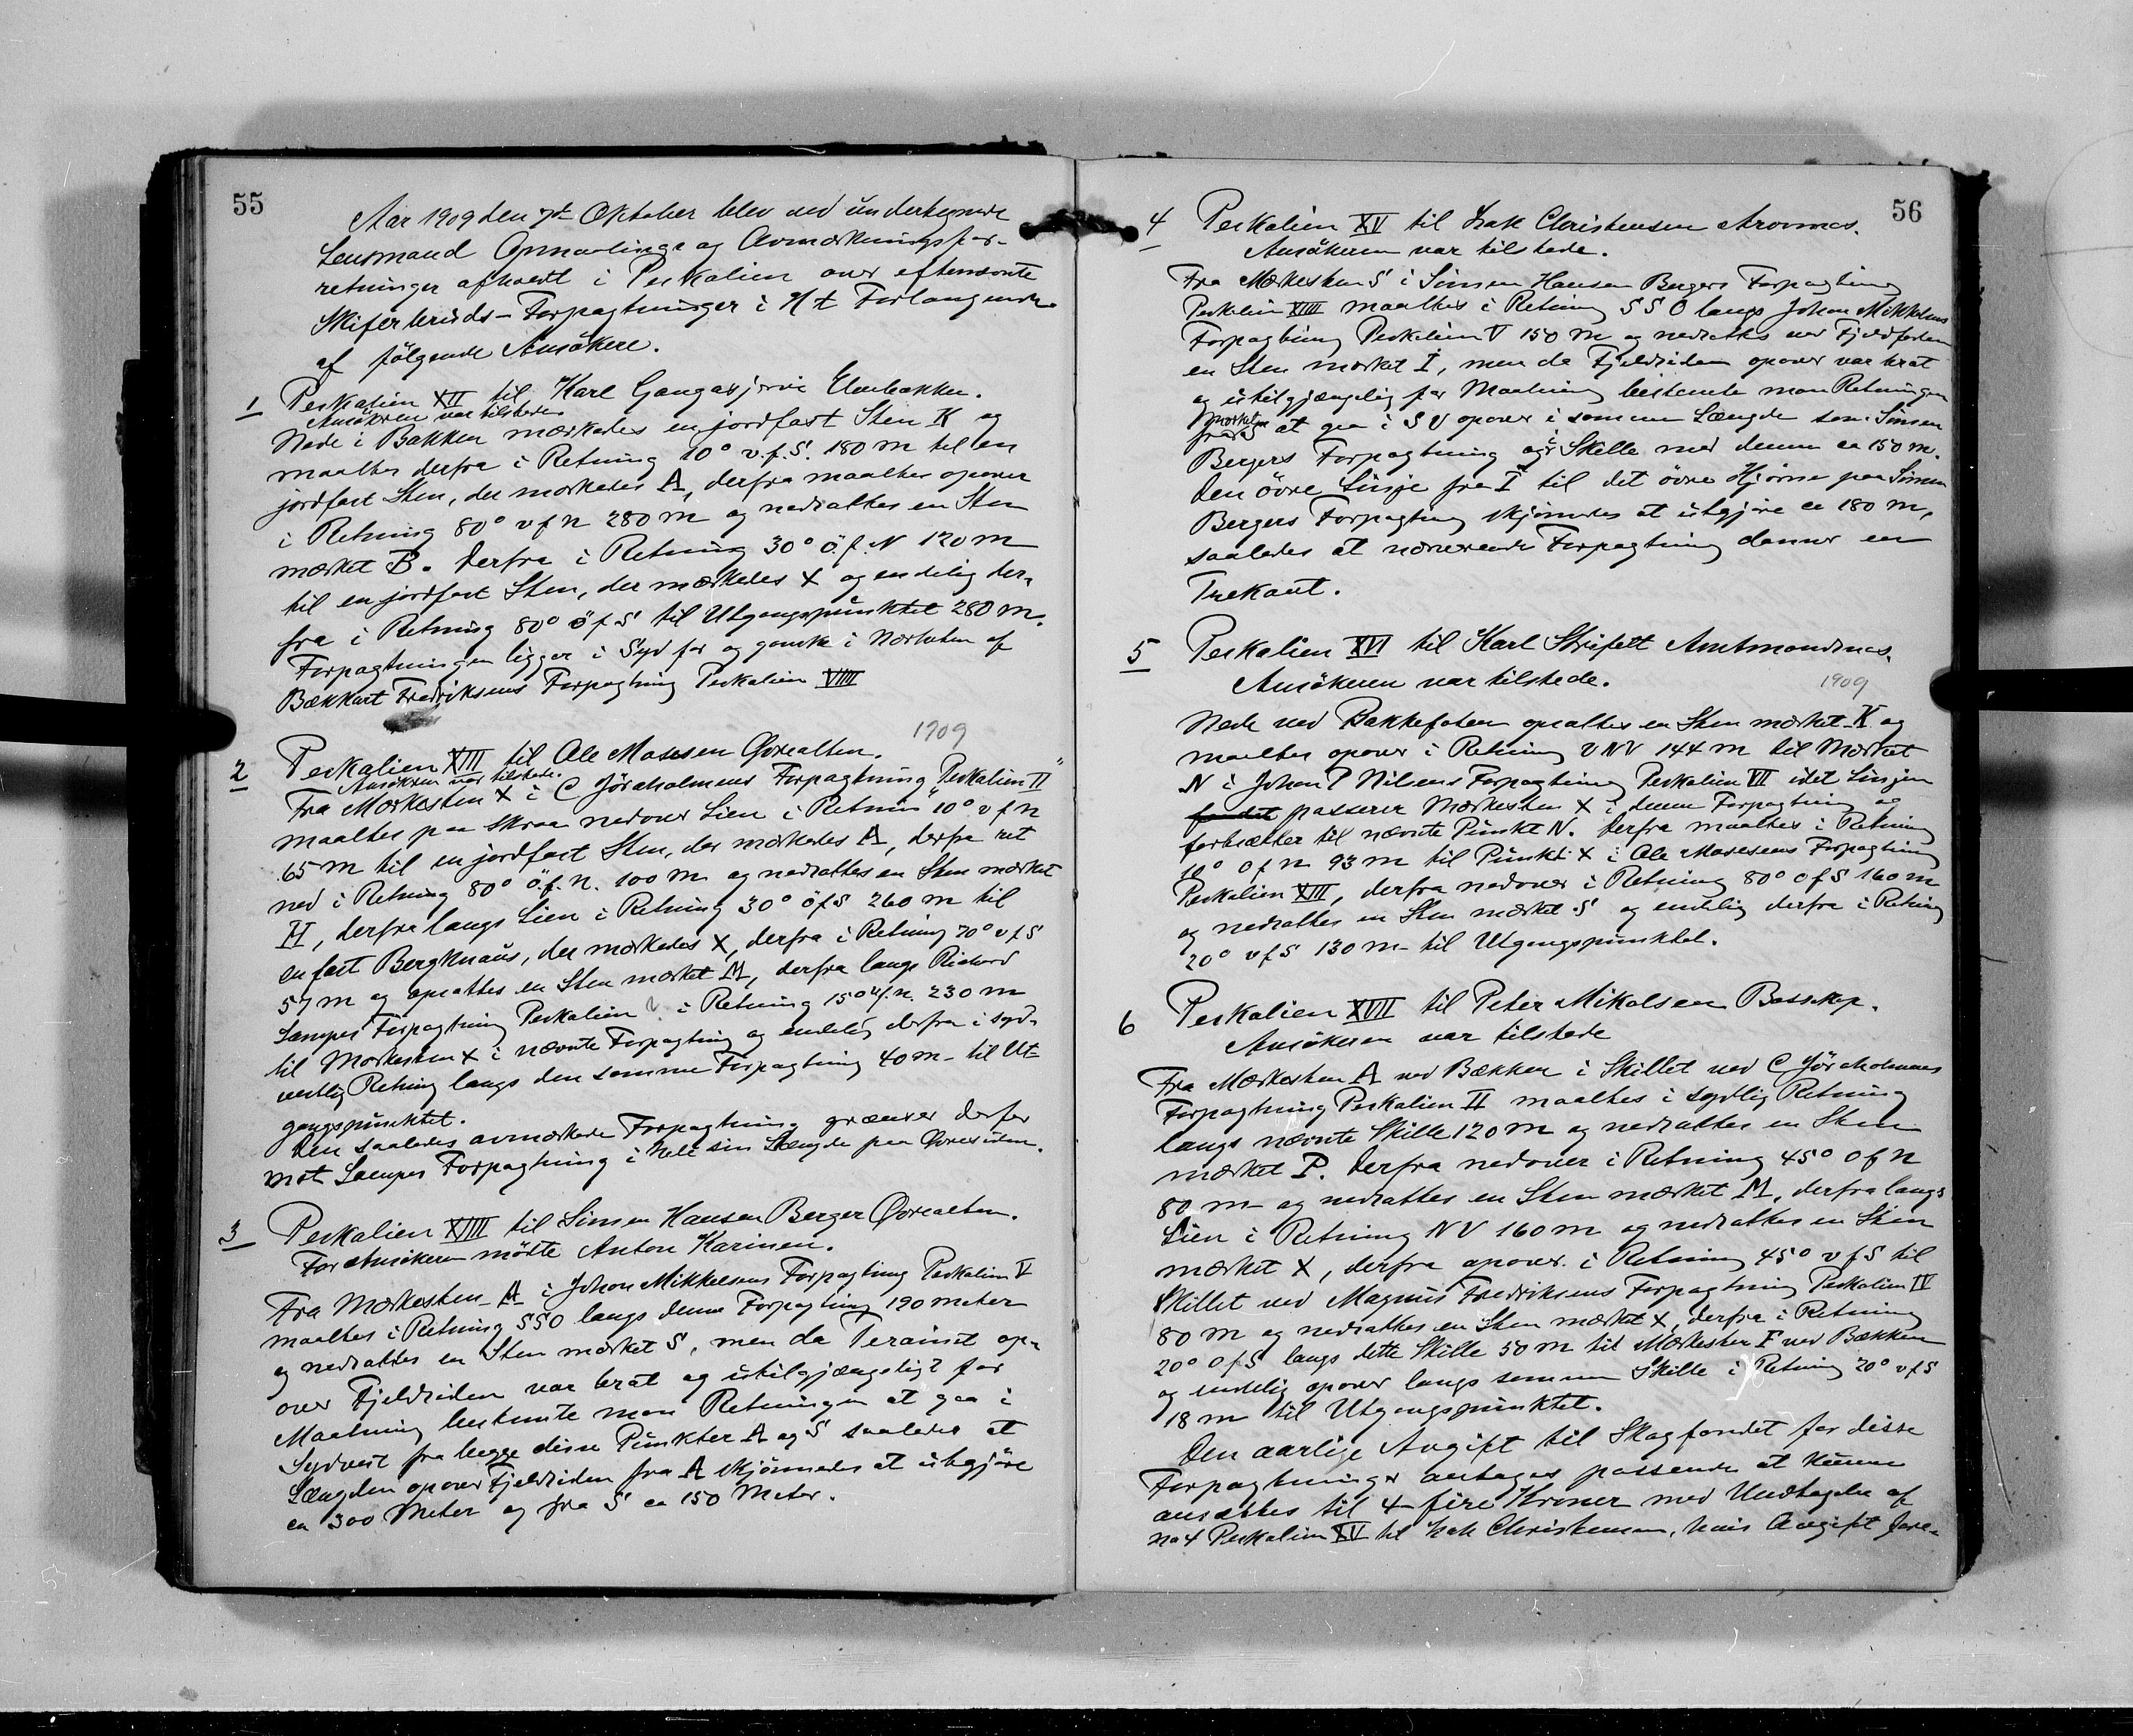 55
Aar 1909 den 7de Oktober blev ved undertegnede
Lensmand Opmaalings og Avmerkningsfor-
retninger afholdt i Peskalien over eftenævnte
Skiferbruds-Forpagtninger i H t Forlangende
af følgende Ansøkere.
1 Peskalien XII til Karl Gangasjærvi Elvebakken.
Ansøkeren var tilstede
Nede i Bakken mærkedes en jordfast Sten K og
maaltes derfra i Retning 10° v.f.S. 180 m til en
jordfast Sten, der mærkedes A, derfra maaltes opover
i Retning 80° v f n 280 m og nedsattes en Sten
mærket B. Derfra i Retning 30° ö.f.N 120 m
til en jordfast Sten, der mærkedes X og endelig der-
fra i Retning 80° ö f S til Utgangspunktet 280 m.
Forpagtningen ligger i Syd for og ganske i Nærheten af
Bækkart Fredriksens Forpagtning Peskalien VIIII
1909
2 Peskalien XIII til Ole Mosesen Øvrealten.
Ansøkren var tilstede.
Fra Mærkesten X i C Jöraholmens Forpagtning "Peskalien II"
maaltes paa skraa nedover Lien i Retnin 10° v f n
65 m til en jordfast Sten, der mærkedes A, derfra ret
ned i Retning 80° ö.f.n. 100 m og nedsattes en Sten mærket
H, derfra langs Lien i Retning 30° ö f S 260 m til
en fast Bergknaus, der mærkedes X, derfra i Retning 70° v f S
57 m og opsattes en Sten mærket M, derfra langs Richard
Lampes Forpagtning Peskalien i Retning 15° v.f.n. 230 m
til Mærkesten X i nævnte Forpagtning og endelig derfra i syd-
vestlig Retning langs den samme Forpagtning 40 m - til Ut-
gangspunktet.
Den saaledes avmærkede Forpagtning grænser derfor
mot Lampes Forpagtning i hele sin Længde paa Øvresiden.
3 Peskalien XIIII til Simen Hansen Berger Øvrealten.
For Ansøkeren mötte Anton Karinen.
Fra Mærkesten A i Johan Mikkelsens Forpagtning Peskalien V
maaltes i Retning SSO langs denne Forpagtning 190 meter
og nedsattes en Sten mærket S, men da Terainet op-
over Fjeldsiden var brat og utilgjængeligt for
Maalning bestemte man Retningen at gaa i
Sydvest fra begge disse Punkter A og S saaledes at
Længden opover Fjeldsiden fra A skjønnedes at utgjøre
ca 300 Meter og fra S ca 150 Meter.
56
4 Peskalien XV til Isak Christensen Aronnæs.
Ansøkeren var tilstede.
Fra Mærkesten S i Simen Hansen Bergers Forpagtning
Peskalien XIIII maaltes i Retning S S O langs Johan Mikkelsens
Forpagtning Peskalien V 150 m og nedsattes ved Fjeldfoten
en Sten mærket I, men da Fjeldsiden opover var brat
og utilgjængelig for Maalning bestemte man Retningen
fra Mærket S at gaa i S V opover i samme Længde som Simen
Bergers Forpagtning og i Skille med denne ca 150 m.
Den övre Linje fra I til det övre Hjörne paa Simen
Bergers Forpagtning skjønnedes at utgjøre ca 180 m,
saaledes at nærværende Forpagtning danner en
Trekant.
5 Peskalien XVI til Karl Strifelt Amtmandsnes.
Ansøkeren var tilstede.
1909
Nede ved Bakkefoten opsattes en Sten mærket K og
maaltes opover i Retning V N V 144 m til Mærket
N i Johan P Nilsens Forpagtning Peskalien VII idet Linjen
passerer Mærkesten X i denne Forpagtning og
fortsætter til nævnte Punkt N. Derfra maaltes i Retning
10° O f n 93 m til Punkt X i Ole Mosesens Forpagtning
Peskalien XIII, derfra nedover i Retning 80° o f S 160 m
og nedsattes en Sten mærket S og endelig derfra i Retning
20° v f S 130 m - til Utgangspunktet.
6 Peskalien XVII til Peter Mikalsen Bossekop.
Ansøkeren var tilstede
Fra Mærkesten A ved Bækken i Skillet ved C Jöraholmens
Forpagtning Peskalien II maaltes i sydlig Retning
langs nævnte Skille 120 m og nedsattes en Sten
mærket P. Derfra nedover i Retning 45° o f n
80 m og nedsattes en Sten mærket M, derfra langs
Lien i Retning NV 160 m og nedsattes en Sten
mærket X, derfra opover i Retning 45° v f S til
Skillet ved Magnus Fredriksens Forpagtning Peskalien IV
80 m og nedsattes en Sten mærket X, derfra i Retning
20° O f S langs dette Skille 50 m til Mærkesten F ved Bækken
og endelig opover langs samme Skille i Retning 20° v f S
18 m til Utgangspunktet.
Den aarlige Avgift til Skogfondet for disse
Forpagtninger antages passende at kunne
ansættes til 4 - fire Kroner med Undtagelse af
no 4 Peskalien XV til Isak Christensen, hvis Avgift fore-